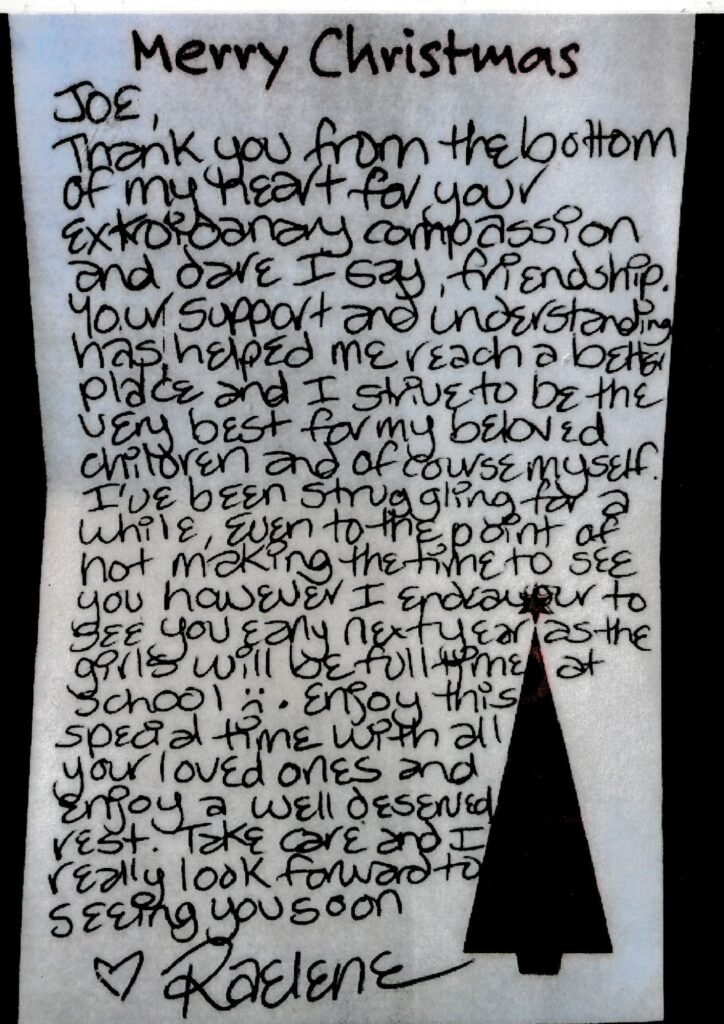 Merry Christmas
JOE,
Thank you from the bottom
of my heart for your
extroidanary compassion
and dare I say, friendship.
Your support and understanding
has helped me reach a better
place and I strive to be the
very best for my beloved
children and of course myself.
I've been struggling for a
while, even to the point of
not making the time to see
you however I endeavour to
see you early next year as the
girls will be full time at
school :(. Enjoy this
special time with all
your loved ones and
enjoy a well deserved
rest. Take care and I
really look forward to
seeing you soon
♡ Raelene